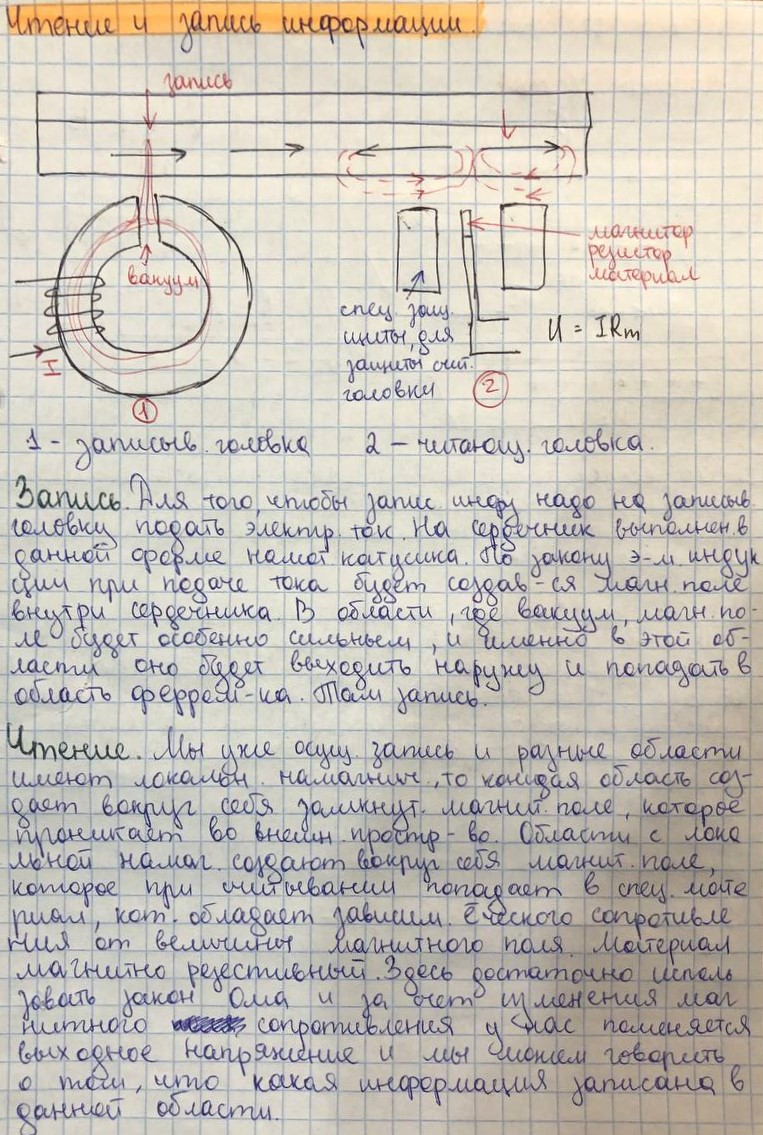 Чтение и запись информации.
запись
вакуум
I
1
магнитор
резистор
материал
спец. защ.
щиты, для
защиты счит.
головки
U = IRm
2
1 - записыв. головка 2 - читающ. головка.
Запись. Для того, чтобы запис. инфу надо на записыв.
головку подать электр. ток. На сердечник выполнен в
данной форме намот катушка. По закону э-м. индук
ции при подаче тока будет создав-ся магн. поле
внутри сердечника. В области, где вакуум, магн. по-
ле будет особенно сильным, и именно в этой об-
ласти оно будет выходить наружу и попадать в
область ферром-ка. Там запись.
Чтение. Мы уже осущ. запись и разные области
имеют локальн. намагнич., то каждая область соз-
дает вокруг себя замкнут. магнит. поле, которое
проникает во внешн. простр-во. Области с лока
льной намаг. создают вокруг себя магнит. поле,
которое при считывании попадает в спец. мате
риал, кот. обладает зависим. ēческого сопротивле
ния от величины магнитного поля. Материал
магнитно резестивный. Здесь достаточно исполь
зовать закон Ома и за счет изменения маг
нитного сопротивления у нас поменяется
выходное напряжение и мы можем говорить
о том, что какая информация записана в
данной области.